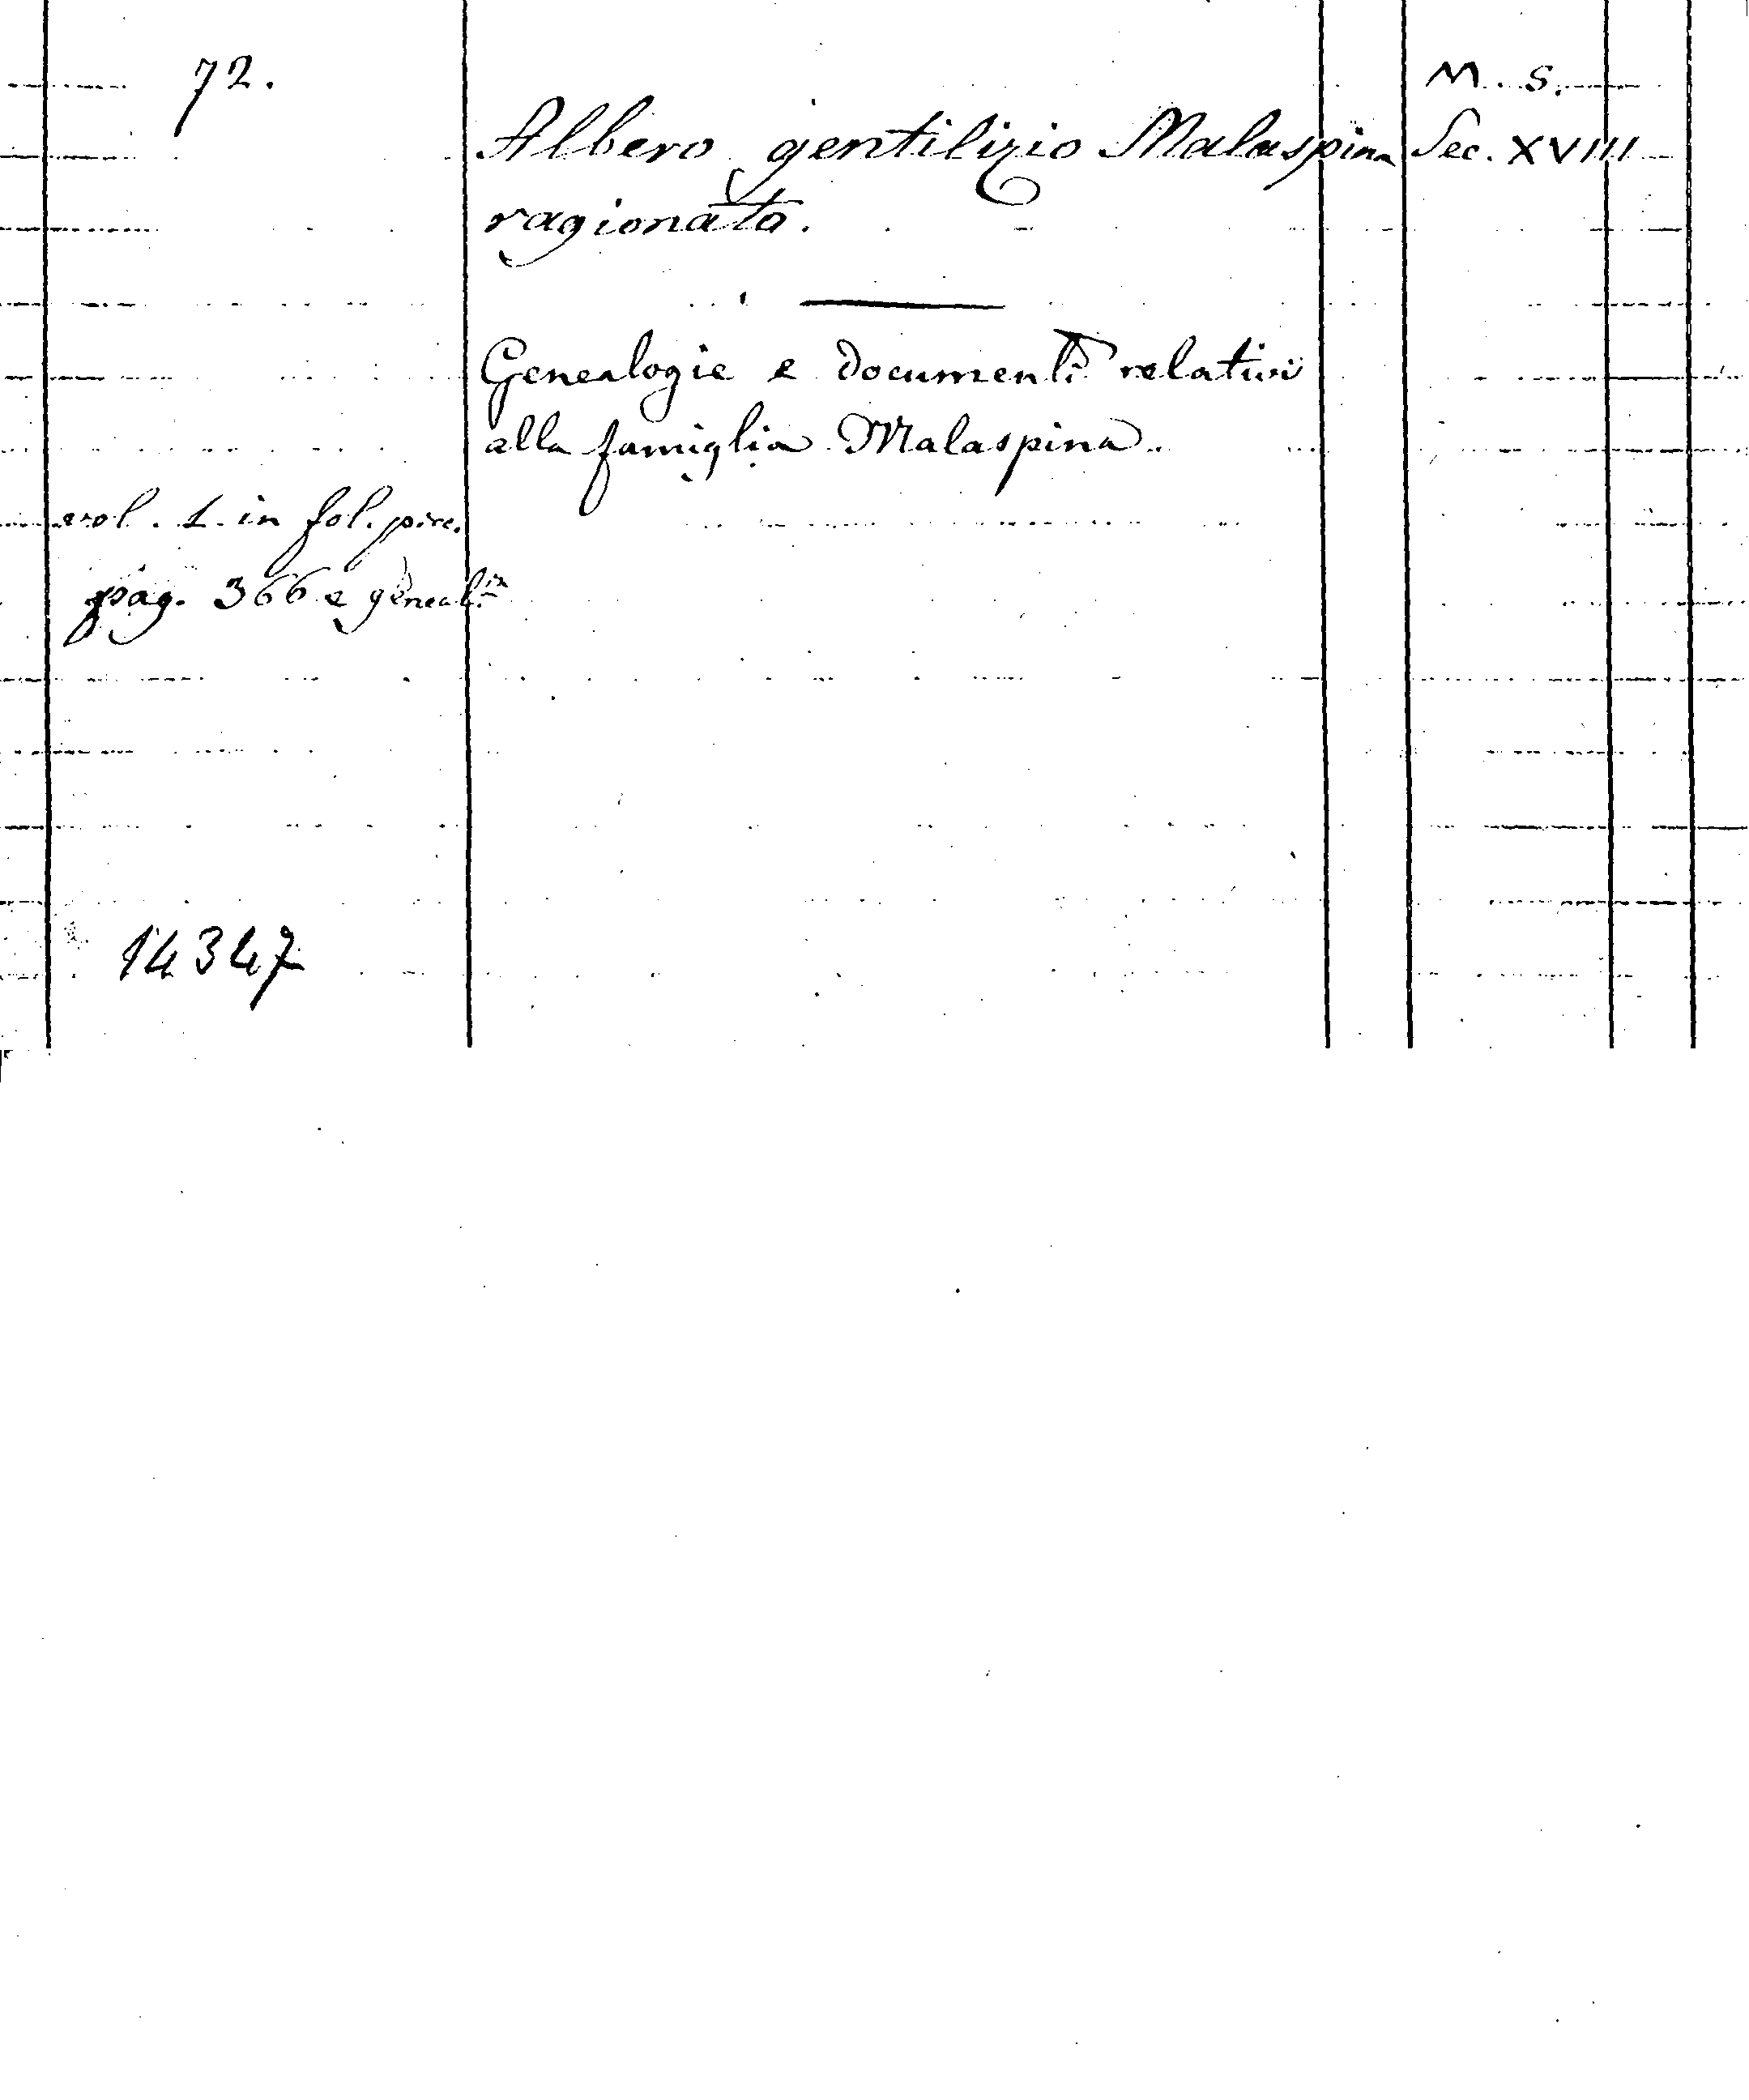 72.
M. S.
Albero gentilizio Malaspina
Sec. XVIII
ragionato.
Genealogie e documenti relativi
alla famiglia Malaspina.
vol. 1. in fol. picc.
pag. 366 e geneal.ia
14347